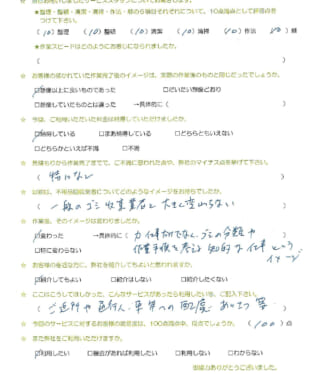 ★整理・整頓・清潔・清掃・作法・躾の5項目それぞれについて、10点満点として評価点を
つけて下さい。
(10)整理 (10)整頓 (10)清潔 (10)清掃 (10)作法 (10)躾
★作業スピードはどのようにお感じになられましたか。
( )
☆ お客様の描かれていた作業完了後のイメージは、実際の作業後のものと同じだったでしょうか。
□想像以上に良いものであった □だいたい想像どおり
□想像していたものとは違った →具体的に( )
☆ 今回、ご利用いただいた料金は納得していただけましたか。
□納得している □まあ納得している □どちらともいえない
□どちらかといえば不満 □不満
☆ 見積もりから作業完了までで、ご不満に思われた点や、弊社のマイナス点を挙げて下さい。
( 特になし )
☆ 以前は、不用品回収業者についてどのようなイメージをお持ちでしたか。
( 一般のゴミ収集業者と大して変わらない )
☆ 作業後、そのイメージは変わりましたか。
□変わった →具体的に( 力仕事だけでなく、ゴミの分類や
□特に変わらない 作業手順を考える知的な仕事という
イメージ
☆ お客様の身近な方に、弊社を紹介してもよいと思われますか。
□紹介してもよい □紹介はしない □紹介したくない
☆ ここはこうしてほしかった、こんなサービスがあったら利用したい等、ご記入下さい。
( ご近所や通行人、車等への配慮 )
☆ 今回のサービスに対するお客様の満足度は、100点満点中、何点でしょうか。 (100)点
☆ また弊社をご利用いただけますか。
□利用したい □機会があれば利用したい □利用しない □わからない
ご協力ありがとうございました。